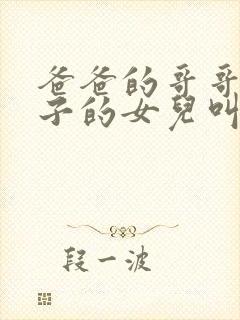 爸爸的哥哥
子的女兒叫
段一波